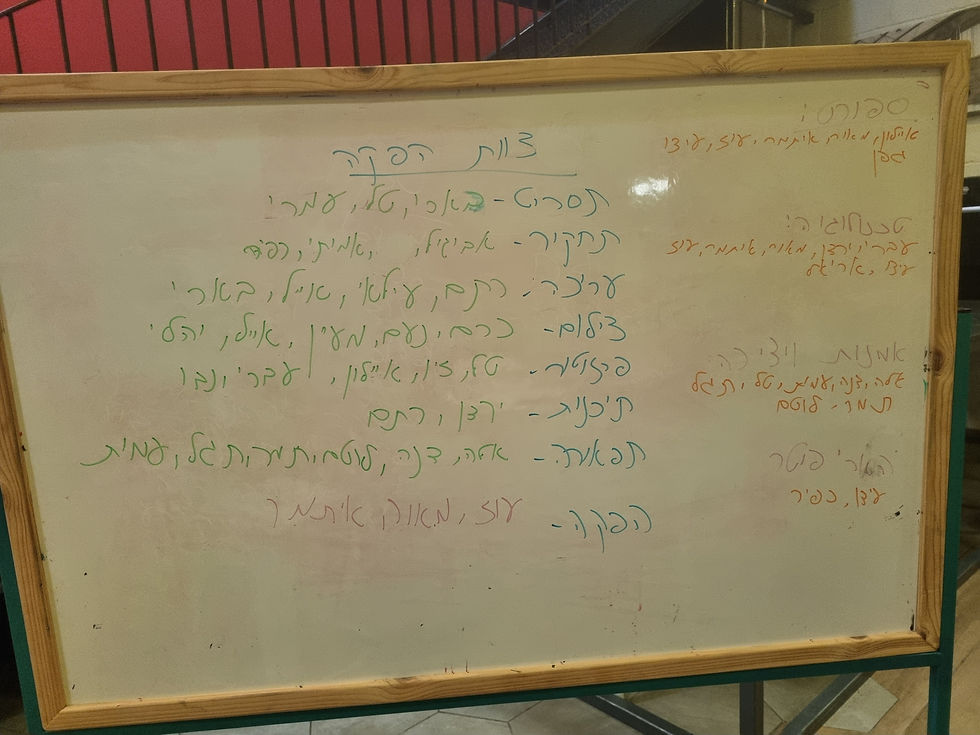 צוות הפקה
תסריט - בארי, טל, עמרי
תחקיר - אביגיל, אמיתי,
עריכה: רתם, עילאי, אייל, בארי
צילום - כרם, נעם, מעין, אייל, יהלי
טל, זיו, איילון, עברי, ונבו
תיכנית - ירדן, רתם
תפאורה - דנה, לוטם, תמר, תגל, עמית
הפקה - עוז, מאור, איתמר
ספורט:
איילון, מאור, איתמר, עוז, עידו
גפן
טכנולוגיה:
עברי, ירדן, מאור, איתמר, עוז
עידו, אריאל
אמנות ויצירה
דנה, עמית, טל, תגל
תמר, לוטם
הארי פוטר
עידו, כפיר